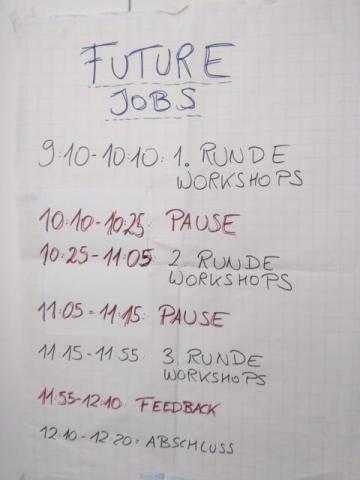 FUTURE
JOBS
9:10-10:10: 1. RUNDE
WORKSHOPS
10:10-10:25: PAUSE
10:25-11:05 2. RUNDE
WORKSHOPS
11:05-11:15: PAUSE
11:15-11:55: 3. RUNDE
WORKSHOPS
11:55-12:10: FEEDBACK
12:10-12:20: ABSCHLUSS